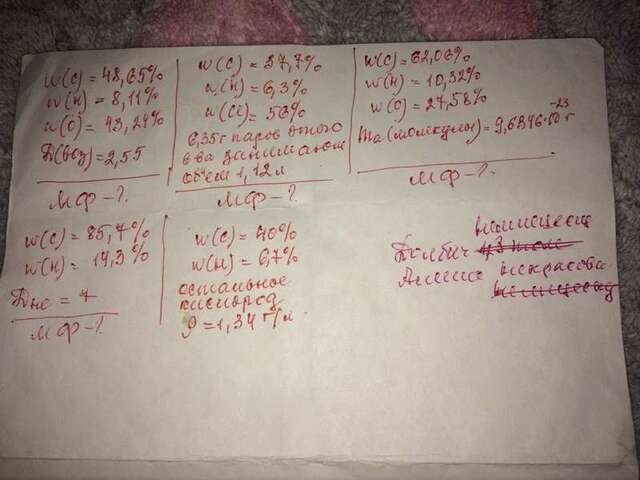 w(C) = 48,65%
w(H) = 8,11%
w(O) = 43,24%
D(воз) = 2,55
МФ-?
w(C) = 37,7%
w(H) = 6,3%
w(Cl) = 56%
6,35г паров этого
в-ва занимают
объем 1,12л
МФ-?
w(C) = 62,06%
w(H) = 10,32%
w(O) = 27,58%
ma(молекулы) = 9,6846·10⁻²³ г
МФ-?
w(C) = 85,7%
w(H) = 14,3%
Dне = 7
МФ-?
w(C) = 40%
w(H) = 6,7%
остальное
кислород
ρ = 1,34 г/л